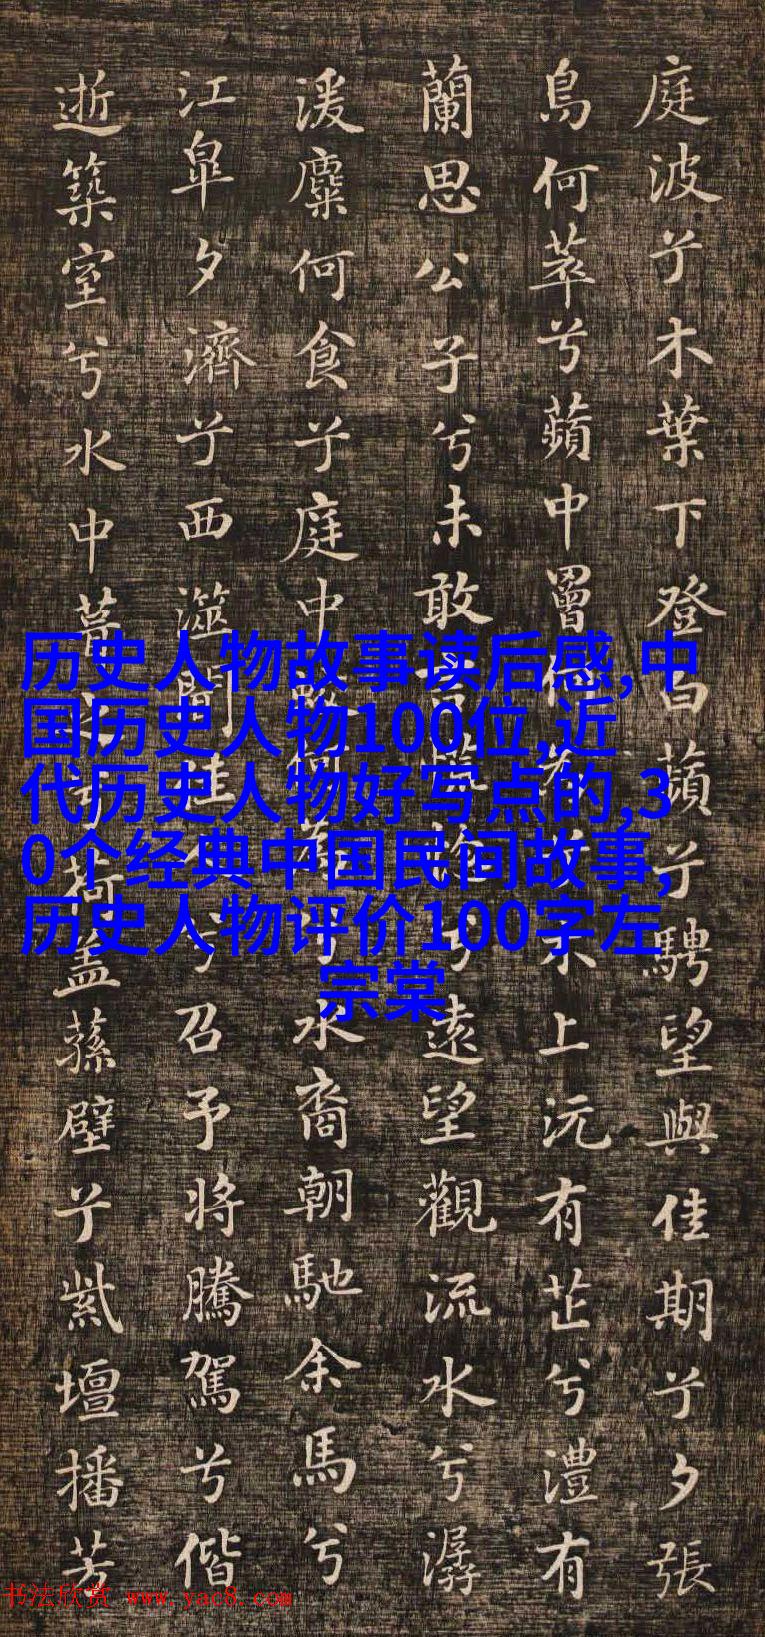 庭波兮木葉下登白蘋兮騁望與佳期兮夕張
鳥何萃兮蘋中罾何為兮木上沅有芷兮澧有
蘭思公子兮未敢言兮遠望觀流水兮潺
湲麋何食兮庭中蛟何為兮水裔朝馳余馬兮
江皋夕濟兮西澨聞佳人兮召予將騰駕兮偕
逝築室兮水中葺荷蓋蓀壁兮紫壇播芳
历史人物故事读后感,中
国历史人物100位,近
代历史人物好写点的,3
0个经典中国民间故事,
历史人物评价100字左
宗棠
书法欣赏 www.yac8.com